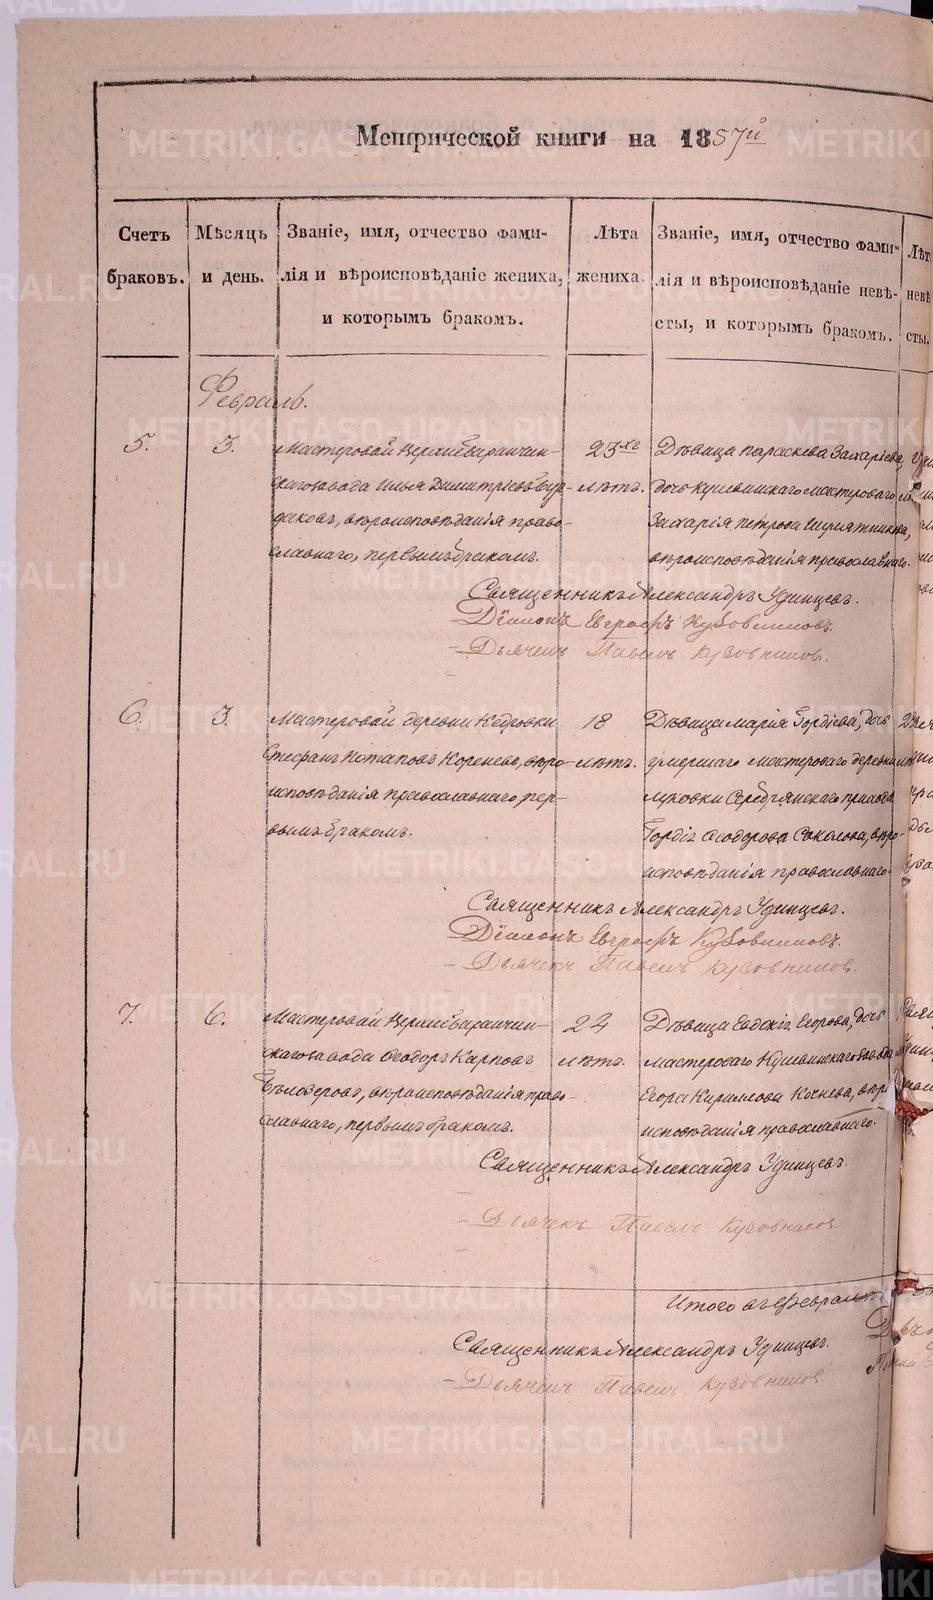 Метрической книги на 1857й
Счетъ
браковъ.
Мѣсяцъ
и день.
Званіе, имя, отчество фами-
лія и вѣроисповѣданіе жениха,
и которымъ бракомъ.
Лѣта
жениха.
Званіе, имя, отчество фами-
лія и вѣроисповѣданіе невѣ-
сты, и которымъ бракомъ.
Лѣт
невѣ
сты.
Февраль.
5.
3.
Мастеровой Верхнебаранчин-
скаго завода Илья Димитріевъ
вѣроисповѣданія право-
славнаго, первымъ бракомъ.
23хъ
лѣтъ.
Дѣвица Параскева Захаріева,
дочь Кушвинскаго мастероваго
Захарія Петрова Шумятникова,
вѣроисповѣданія православнаго.
Священникъ Александръ Удинцевъ.
Діаконъ
Дьячекъ Павелъ Кузовников.
6.
3.
Мастеровой деревни Кедровки
Стефанъ Потаповъ Кореневъ, вѣро-
исповѣданія православнаго пер-
вымъ бракомъ.
18
лѣтъ.
Дѣвица Марія Гордіева, дочь
умершаго мастероваго деревни
Луковки Серебрянскаго прихода
Гордія Ѳеодорова Соколова, вѣро-
исповѣданія православнаго.
Священникъ Александръ Удинцевъ.
Діаконъ
Дьячекъ Павелъ Кузовников.
7.
6.
Мастеровой Верхнебаранчин-
скаго завода Ѳеодоръ Карповъ
Бѣлозеровъ, вѣроисповѣданія право-
славнаго, первымъ бракомъ.
22
лѣтъ.
Дѣвица Евдокія Егорова, дочь
мастероваго Кушвинскаго завода
Егора Кириллова Кочнева, вѣро
исповѣданія православнаго.
Священникъ Александръ Удинцевъ.
Дьячекъ Павелъ Кузовников.
Итого въ Февралѣ
Священникъ Александръ Удинцевъ.
Дьячекъ Павелъ Кузовников.
METRIKI.GASO-URAL.RU